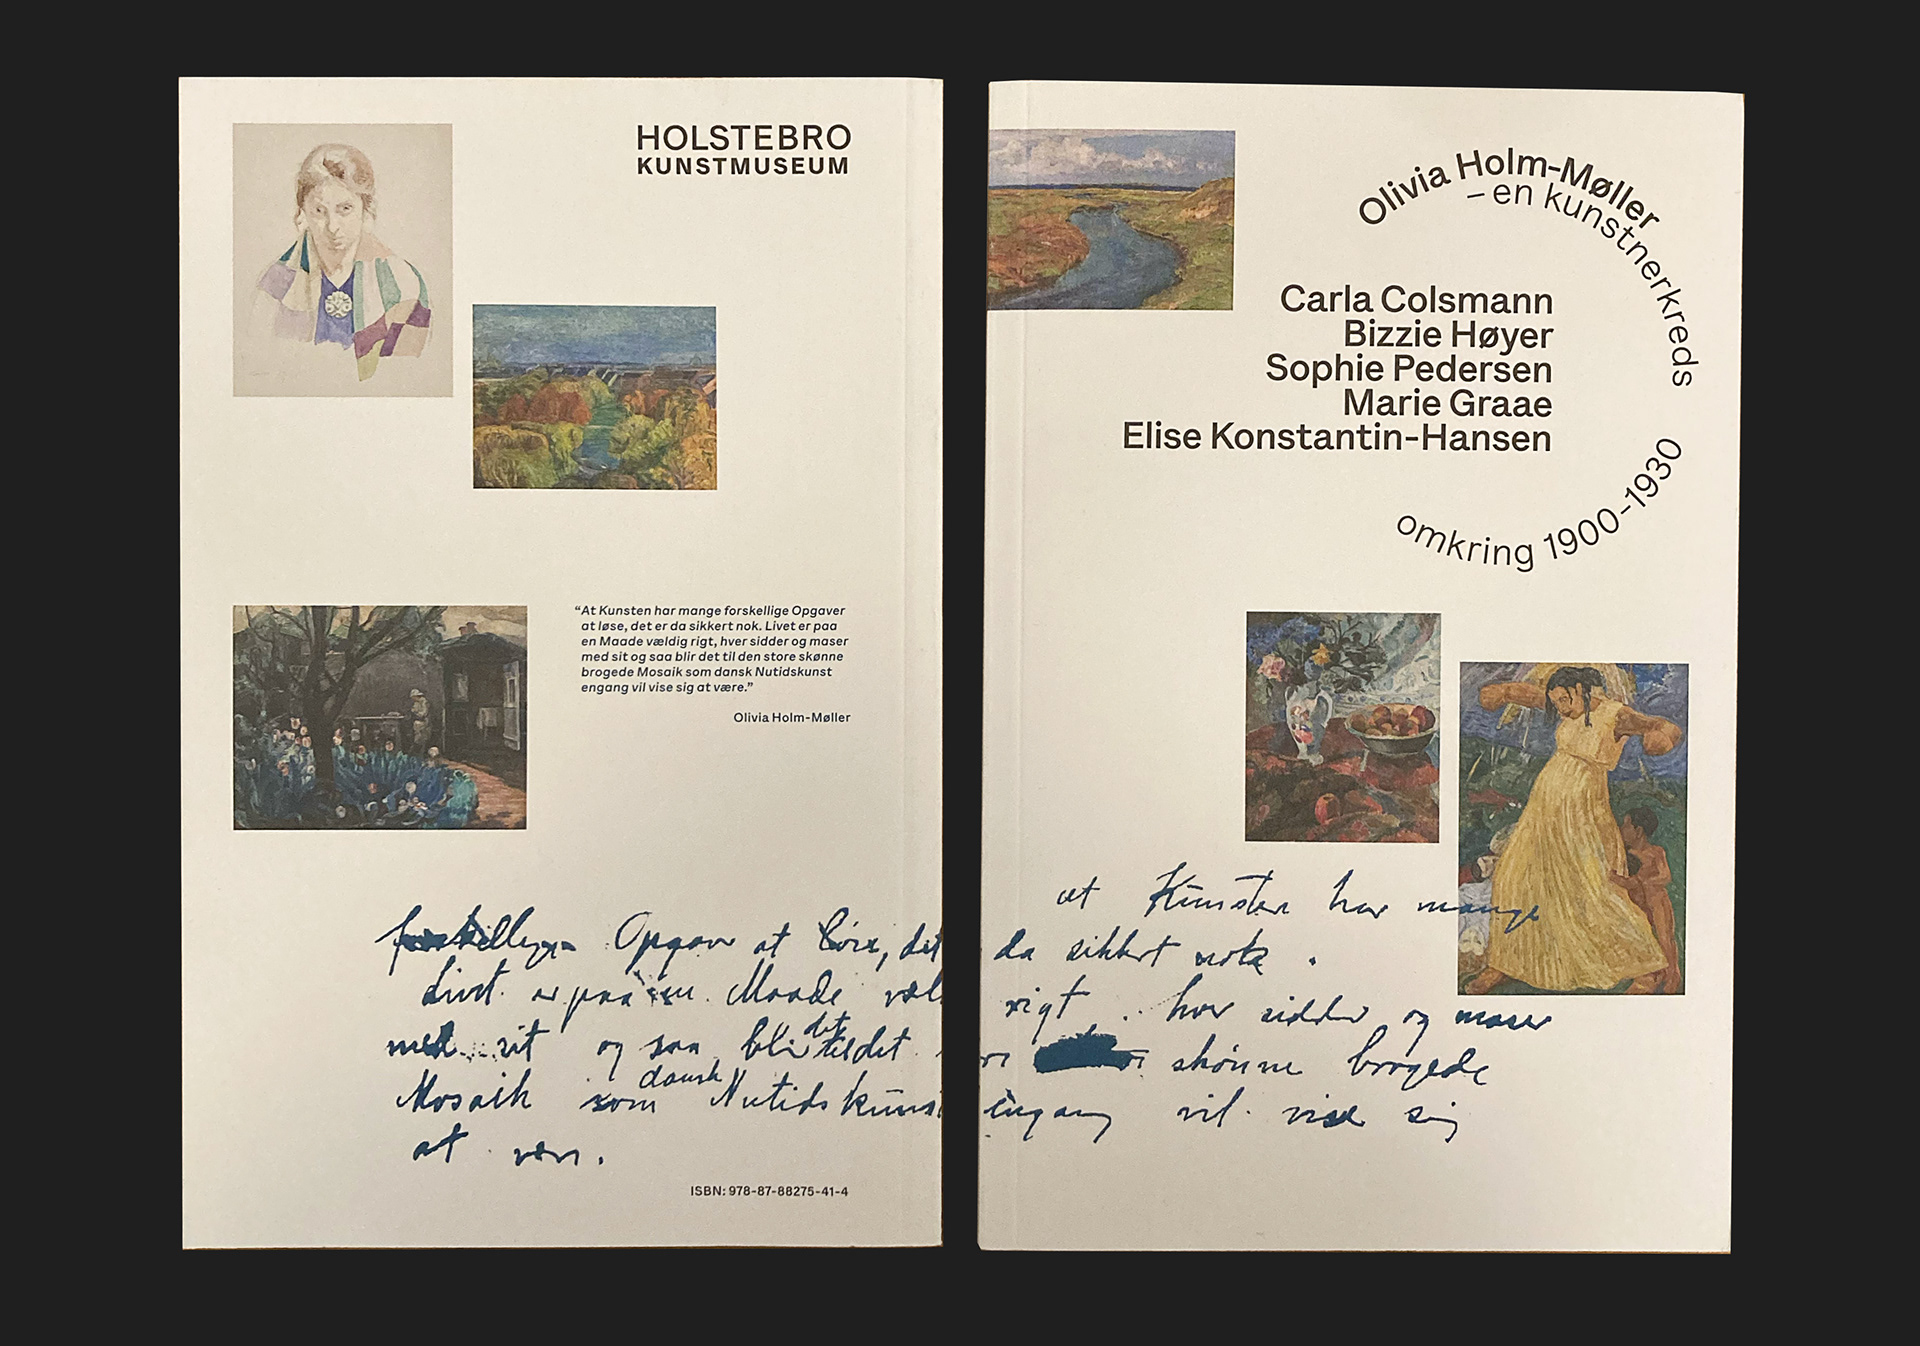 HOLSTEBRO
KUNSTMUSEUM
“At Kunsten har mange forskellige Opgaver
at løse, det er da sikkert nok. Livet er paa
en Maade vældig rigt, hver sidder og maser
med sit og saa blir det til den store skønne
brogede Mosaik som dansk Nutidskunst
engang vil vise sig at være.”
Olivia Holm-Møller
forskellige Opgaver at løse, det
Livet er paa en Maade væl
med sit og saa blir det til det
Mosaik som dansk Nutidskunst
at være.
ISBN: 978-87-88275-41-4
Olivia Holm-Møller
– en kunstnerkreds
omkring 1900-1930
Carla Colsmann
Bizzie Høyer
Sophie Pedersen
Marie Graae
Elise Konstantin-Hansen
at Kunsten har mange
da sikkert nok.
rigt hver sidder og maser
skønne brogede
engang vil vise sig